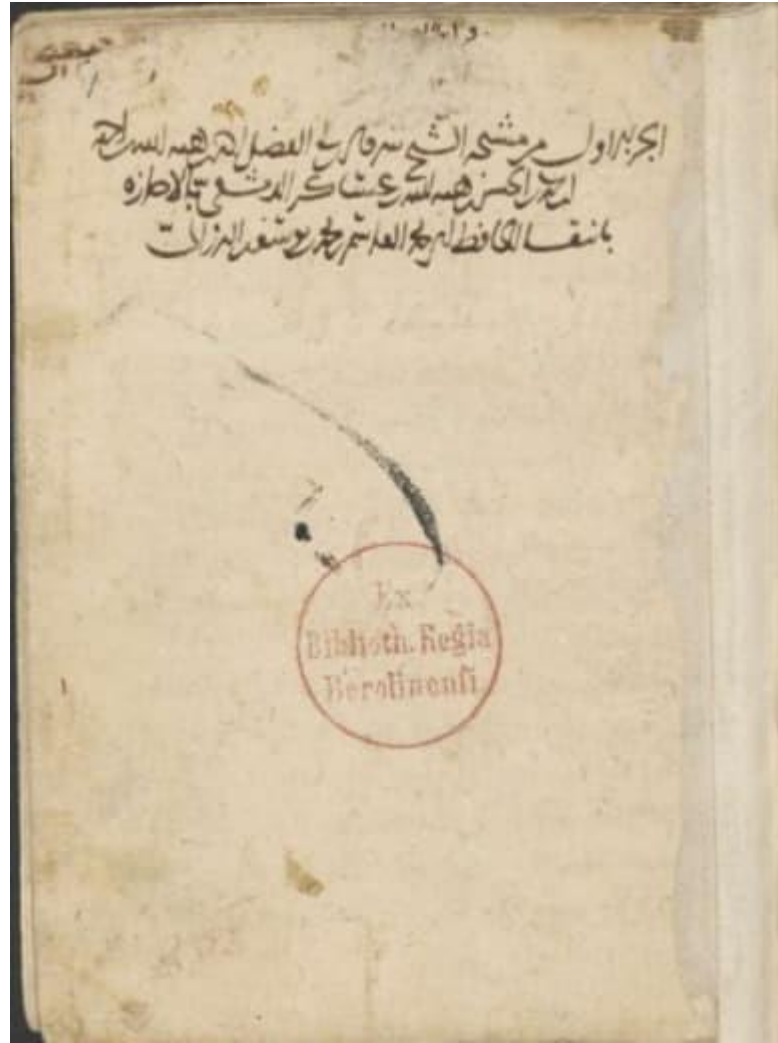 الجزء الاول من مشيخة الشيخ شرف الدين ابي الفضل احمد بن هبة الله بن احمد
ابن محمد بن الحسن بن هبة الله بن عساكر الدمشقي بالاجازة
بانتقا الحافظ ابي القاسم محمد بن يوسف البرزالي
Ex
Biblioth. Regia
Berolinensi